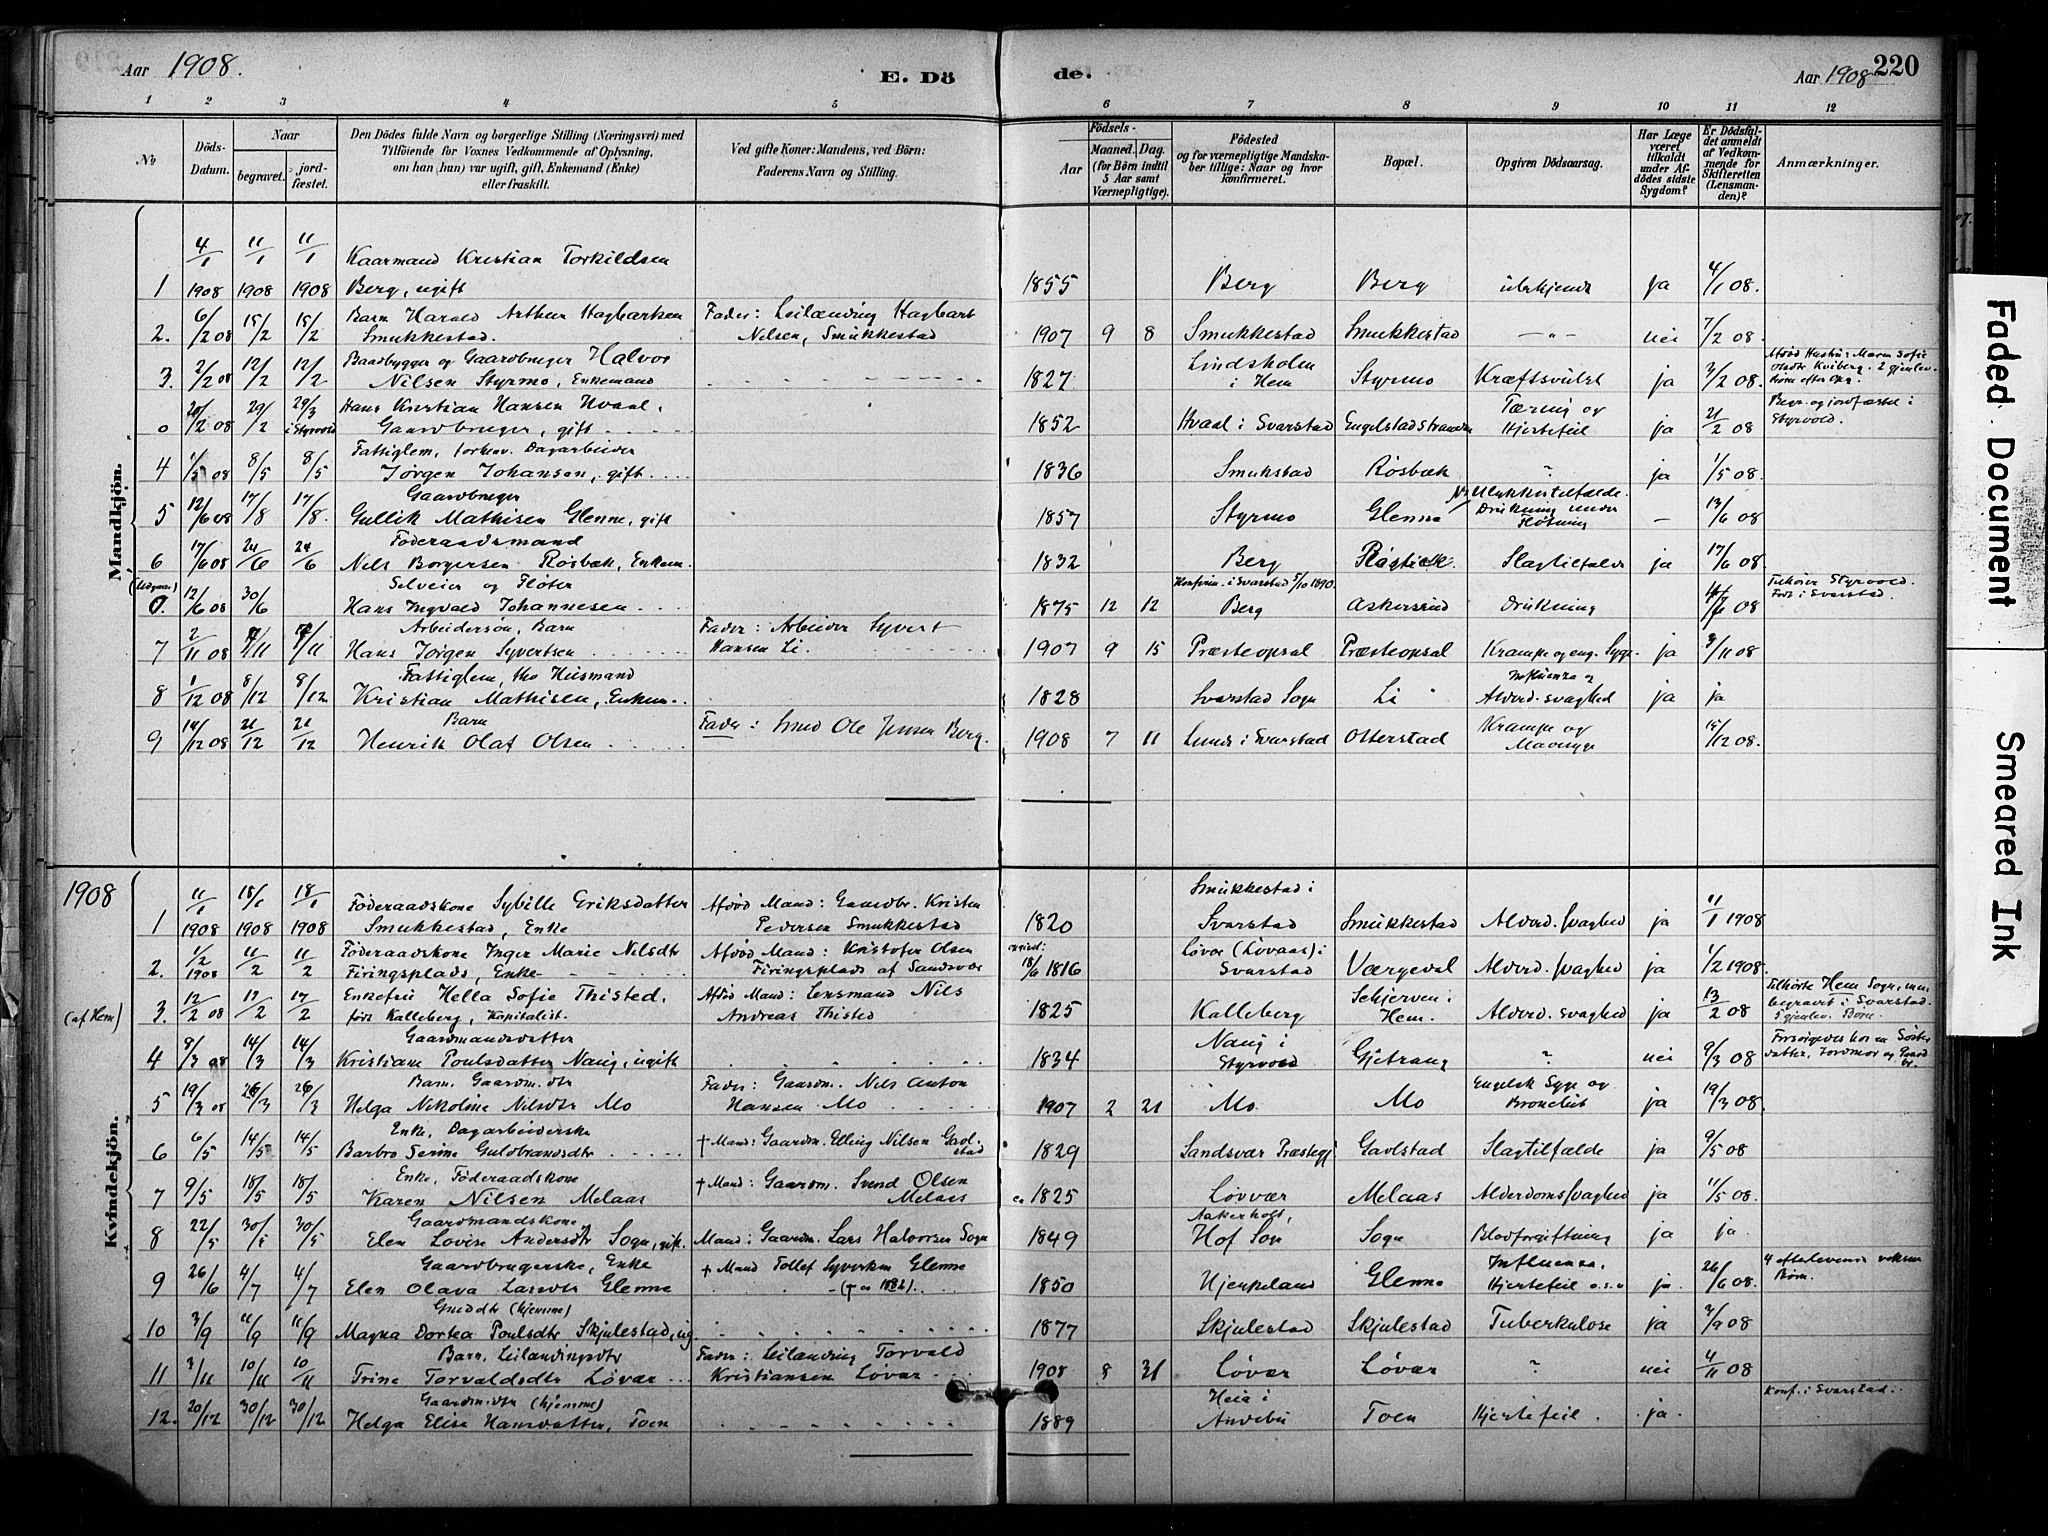 Aar 1908.
E. Dö
de.
Aar 1908 220
1 2 3 4 5 6 7 8 9 10 11 12
No
Döds-Datum.
Naar
begravet.
jord-fæstet.
Den Dödes fulde Navn og borgerlige Stilling (Næringsvei) med
Tilföiende for Voxnes Vedkommende af Oplysning,
om han (hun) var ugift, gift, Enkemand (Enke)
eller fraskilt.
Ved gifte Koner: Mandens, ved Börn:
Faderens Navn og Stilling.
Födsels-
Aar
Maaned. Dag.
(for Börn indtil
5 Aar samt
Værnepligtige).
Födested
og for værnepligtige Mandska-
ber tillige: Naar og hvor
konfirmeret.
Bopæl.
Opgiven Dödsaarsag.
Har Læge
været
tilkaldt
under Af-
dödes sidste
Sygdom?
Er Dödsfal-
det anmeldt
af Vedkom-
mende for
Skifteretten
(Lensman-
den)?
Anmærkninger.
Mandkjön.
4/1 11/1 11/1 Kaarmand Kristian Torkildsen
1 1908 1908 1908 Berg, ugift 1855 Berg Berg ubekjendt ja 4/1 08.
6/2 08 15/2 15/2 Barn Harald Arthur Hagbartsen Fader: Leilænding Hagbart
2. Smukkestad. Nilsen, Smukkestad 1907 9 8 Smukkestad Smukkestad -"- nei 7/2 08.
2/2 08 12/2 12/2 Baadbygger og Gaardbruger Halvor Lindsholm
3. Nilsen Styrmo, Enkemand 1827 i Hem Styrmo Kræftsvulst ja 3/2 08. Afdød Hustru: Maren Sofie
Olsdtr Kviberg. 2 gjenlev.
Børn efter
20/2 08 29/2 29/3 i Styrvold Hans Kristian Hansen Hvaal. Tæring og
0 Gaardbruger, gift 1852 Hvaal i Svarstad Engelstadstranden Hjertefeil ja 21/2 08 Begr. og jordfæstet i
Styrvold.
1/5 08 8/5 8/5 Fattiglem, forhenv. Dagarbeider
4 Jørgen Johansen, gift 1836 Smukstad Røsbæk " ja 1/5 08
12/6 08 17/8 17/8. Gaardbruger Ulykkestilfælde.
5 Gullik Mathisen Glenne, gift 1857 Styrmo Glenne Drukning under
Fløtning — 13/6 08
17/6 08 24/6 24/6 Föderaadsmand
6 Nils Borgersen Røsbæk, Enkem. 1832 Berg Røsbæk Slagtilfælde ja 17/6 08.
12/6 08 30/6 Selveier og Fløter Konfirm. i Svarstad 5/10 1890. Tilhører Styrvold.
0. Hans Ingvald Johannesen 1875 12 12 Berg Askersrud Drukning 6 08 Født i Svarstad.
2/11 08 Arbeidersøn, Barn Fader: Arbeider Syvert
7 Hans Jørgen Syvertsen Hansen Li. 1907 9 15 Præsteopsal Præsteopsal Krampe og eng. Syge. ja 3/11 08
1/12 08 8/12 8/12 Fattiglem, Husmand Influenza og
8 Kristian Mathisen, Enkem. 1828 Svarstad Sogn Li Alderd. svaghed ja ja
14/12 08 21/12 21/12 Barn Fader: Smed Ole Jensen Berg. Krampe og
9 Henrik Olaf Olsen 1908 7 11 Lunde i Svarstad Otterstad Mavesyge 15/12 08.
1908
Kvindekjön.
11/1 18/1 18/1 Föderaadskone Sybille Eriksdatter Afdød Mand: Gaardbr. Kristen Smukkestad i
1 1908 1908 1908 Smukkestad, Enke Pedersen Smukkestad 1820 Svarstad Smukkestad Alderd. svaghed ja 11/1 1908
1/2 1908 11/2 11/2 Föderaadskone Inger Marie Nilsdtr Afdød Mand: Kristofer Olsen Løvar (Løvaas) i
2. Firingsplads, Enke Firingsplads af Sandsvær 18/6 1816 Svarstad Værgeval Alderd. svaghed ja 1/2 1908.
(af Hem) 12/2 08 17/2 17/2 Enkefru Hella Sofie Thisted, Afdød Mand: Lensmand Nils Schjerven i
3. født Kalleberg, Kapitalist. Andreas Thisted 1825 Kalleberg Hem. Alderd. svaghed ja 13/2 08 Tilhørte Hem Sogn, men
begravet i Svarstad.
5 gjenlev. Børn.
9/3 08 14/3 14/3 Gaardmandsdatter Naug i
4 Kristiane Poulsdatter Naug, ugift 1834 Styrvold Gjetrang " nei 9/3 08 Forsørgedes hos en Søster
datter, Jordmor og Gaard
br.
19/3 08 26/3 26/3 Barn, Gaardm. dtr Fader: Gaardm. Nils Anton Engelsk Syge og
5 Helga Nikoline Nilsdtr Mo Hansen Mo 1907 2 21 Mo Mo Bronchit ja 19/3 08.
6/5 14/5 14/5 Enke, Dagarbeiderske † Mand: Gaardm. Elling Nilsen Gavl-
6 Barbro Serine Guldbrandsdtr stad 1829 Sandsvær Præstegj Gavlstad Slagtilfælde ja 9/5 08
9/5 18/5 18/5 Enke, Föderaadskone † Mand: Gaardm. Svend Olsen
7 Karen Nilsen Melaas Melaas ca 1825 Løvvær Melaas Alderdomssvaghed ja 11/5 08.
22/5 30/5 30/5 Gaardmandskone Aakerholt,
8 Elen Lovise Andersdtr Sogn, gift. Mand: Gaardm. Lars Halvorsen Sogn 1849 Hof Sogn Sogn Blodforgiftning ja ja
26/6 4/7 4/7 Gaardbrugerske, Enke † Mand Tollef Syversen Glenne Influenza,
9 Elen Olava Larsdtr Glenne († ca 1882) 1850 Hjerpeland Glenne Hjertefeil o.s.v ja. 26/6 08. 4 efterlevende voksne
Børn.
3/9 11/9 11/9 Gmddtr (hjemme)
10 Magna Dortea Poulsdtr Skjulestad, ug 1877 Skjulestad Skjulestad Tuberkulose ja 3/9 08
3/11 10/11 10/11 Barn, Leilændingsdtr Fader: Leilænding Torvald
11 Trine Torvaldsdtr Løvar Kristiansen Løvar 1908 8 31 Løvar Løvar " nei 4/11 08
20/12 30/12 30/12 Gaardm. dtr (hjemme) Heia i Konf. i Svarstad.
12. Helga Elise Hansdatter, Toen 1889 Andebu Toen Hjertefeil. ja.
Faded Document
Smeared Ink